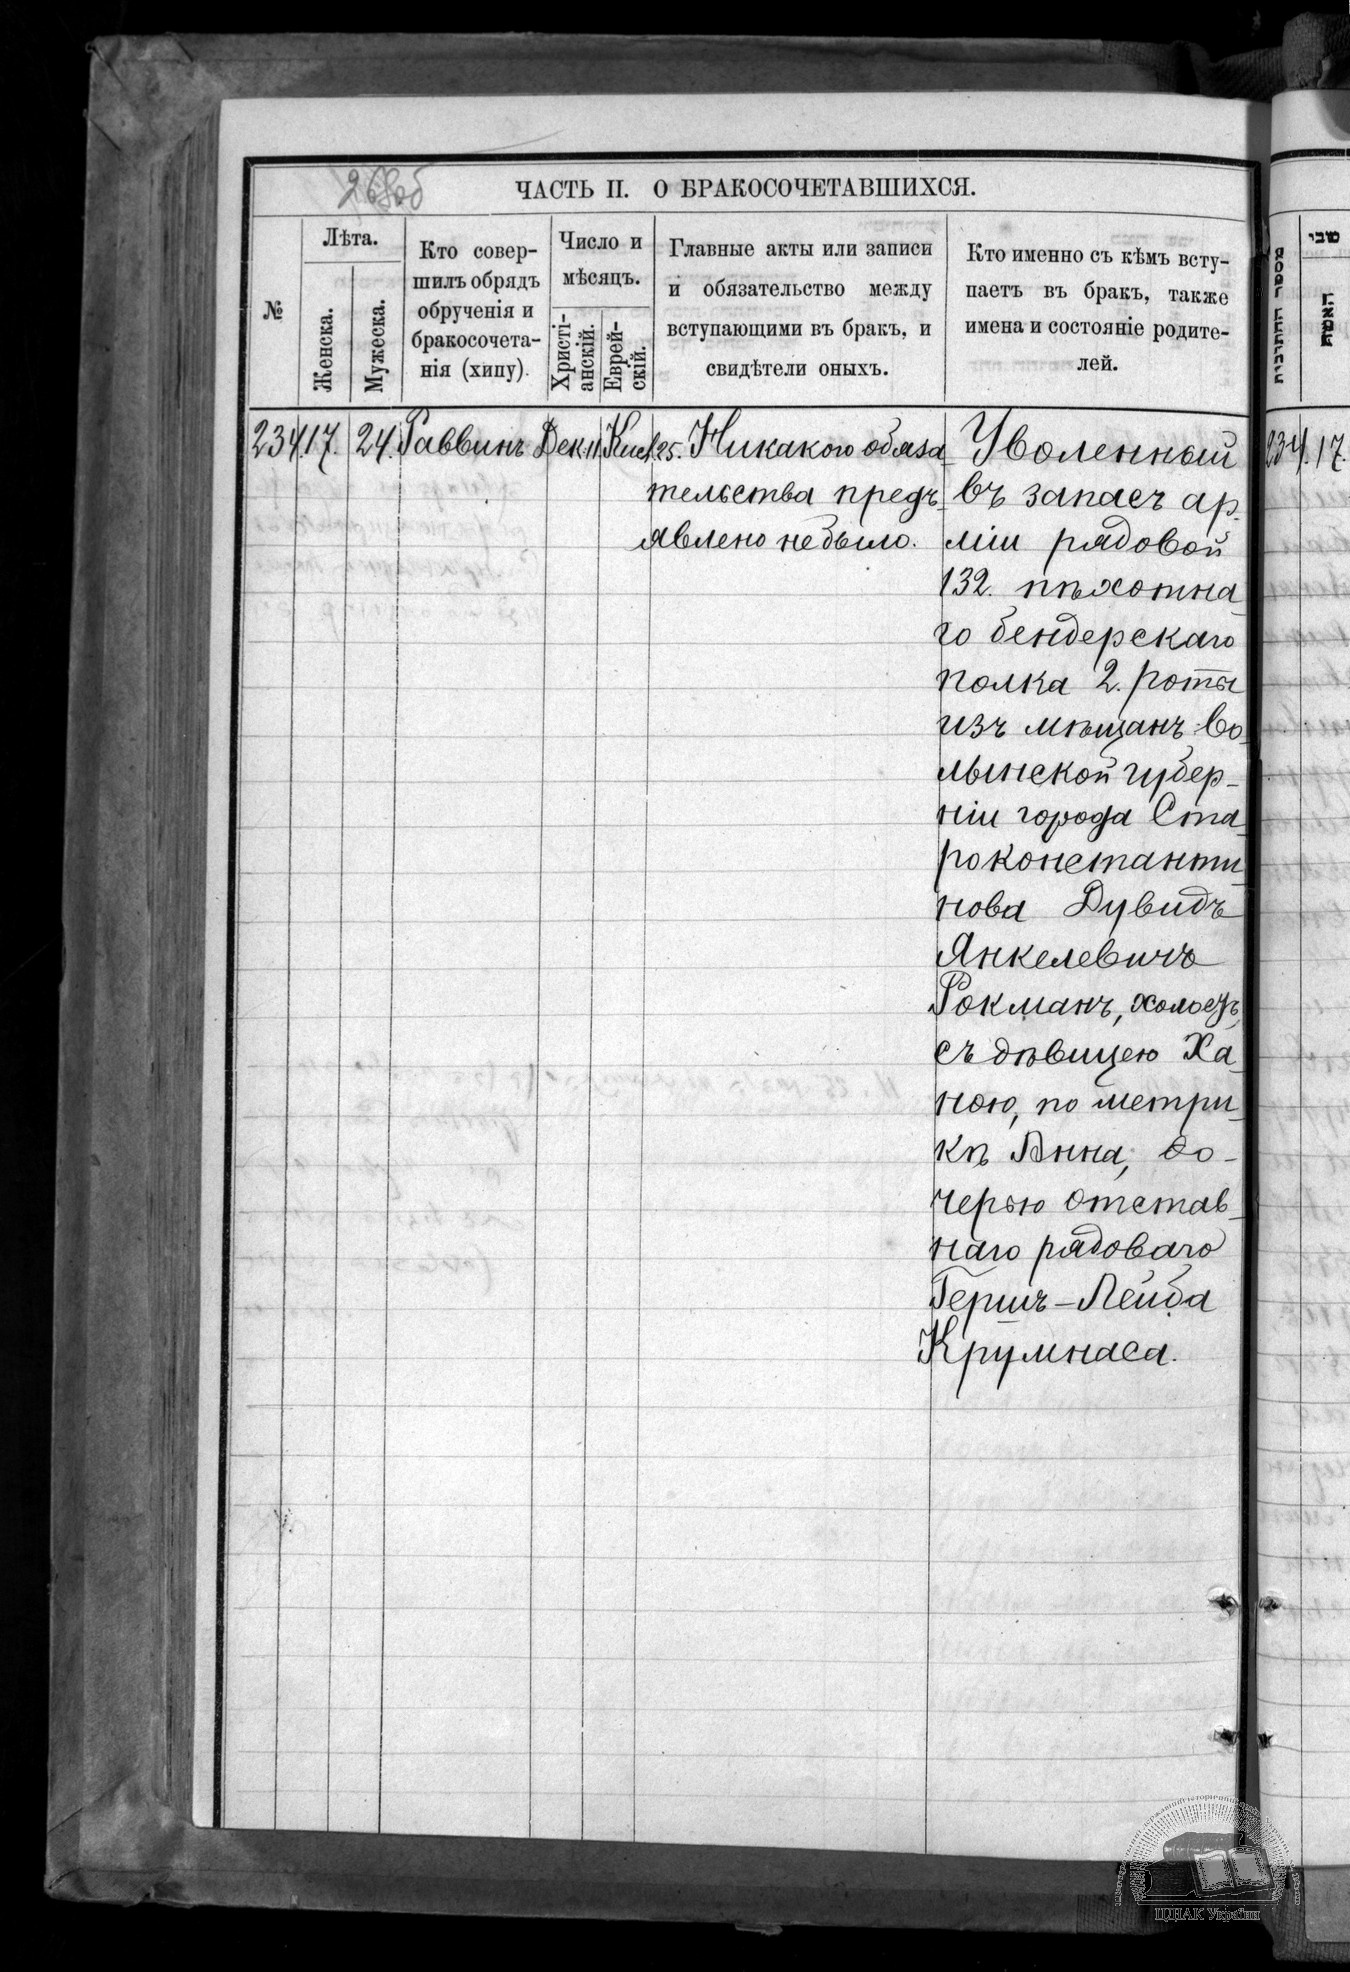 268об
ЧАСТЬ II. О БРАКОСОЧЕТАВШИХСЯ.
№
Лѣта.
Женска.
Мужеска.
Кто совер-
шилъ обрядъ
обрученія и
бракосочета-
нія (хипу).
Число и
мѣсяцъ.
Христі-
анскій.
Еврей-
скій.
Главные акты или записи
и обязательство между
вступающими въ бракъ, и
свидѣтели оныхъ.
Кто именно съ кѣмъ всту-
паетъ въ бракъ, также
имена и состояніе родите-
лей.
234. 17. 24. Раввинъ Дек. 11 Кисл. 25. Никакого обяза-
тельства предъ-
явлено небыло.
Уволенный
въ запасъ ар-
міи рядовой
132. пѣхотна-
го бендерскаго
полка 2. роты
изъ мѣщанъ Во-
лынской губер-
ніи города Ста-
роконстанти-
нова Дувидъ
Янкелевичъ
Рокманъ, холостъ,
съ дѣвицею Ха-
ною, по метри-
кѣ Анна, до-
черью отстав-
наго рядоваго
Гершъ-Лейба
Крумнаса.
מספר החתונות
שני
האשה
234. 17.
ЦДІАК України